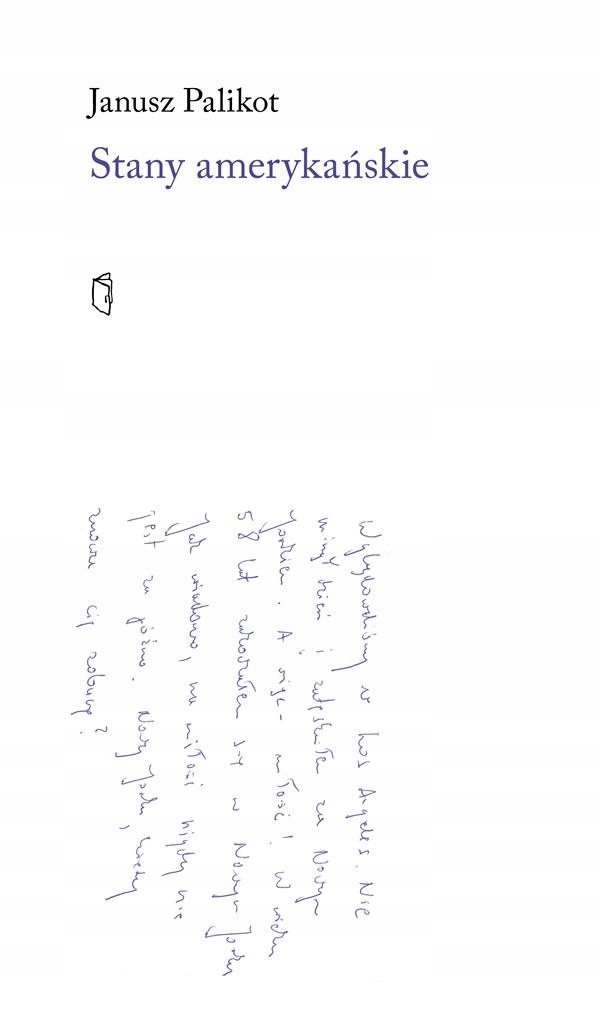 Janusz Palikot
Stany amerykańskie
Wylądowaliśmy w Los Angeles. Nie
minął dzień i zatęskniłem za Nowym
Jorkiem. A więc - miłość! W wieku
58 lat zakochałem się w Nowym Jorku
Jak wiadomo, na miłość nigdy nie
jest za późno. Nowy Jorku, kiedy
znowu cię zobaczę?